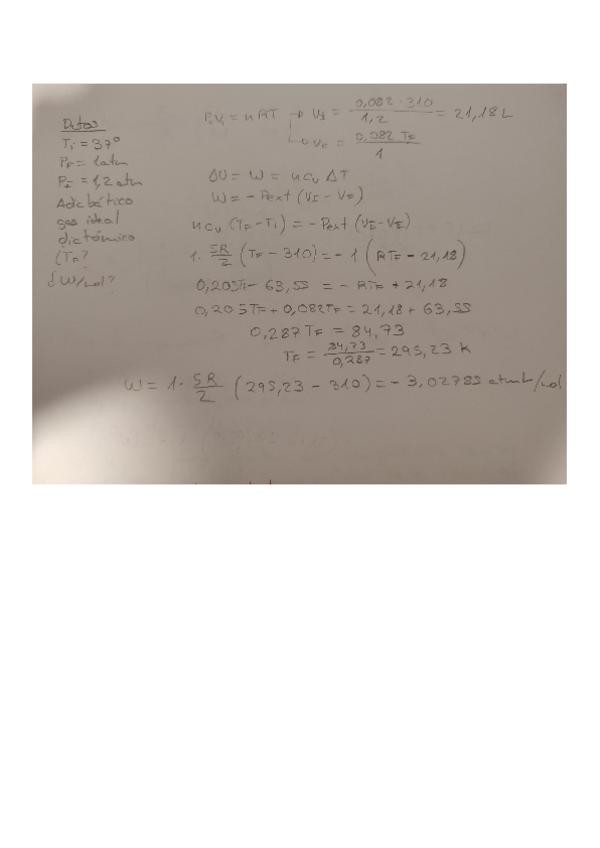 Datos
Ti = 37°
PF = 1 atm
PI = 1,2 atm
Adiabático
gas ideal
diatómico
¿TF?
¿W/mol?
P.Vi = nRT → VI = 0,082 · 310 / 1,2 = 21,18 L
→ VF = 0,082 TF / 1
ΔU = W = ncv ΔT
W = - Pext (VI - VE)
ncv (TF - Ti) = - Pext (VI - VE)
1. 5R/2 (TF - 310) = - 1 (RTF - 21,18)
0,205TF - 63,55 = - RTF + 21,18
0,205TF + 0,082TF = 21,18 + 63,55
0,287 TF = 84,73
TF = 84,73 / 0,287 = 295,23 K
W = 1 · 5R/2 (295,23 - 310) = - 3,02785 atm·L/mol